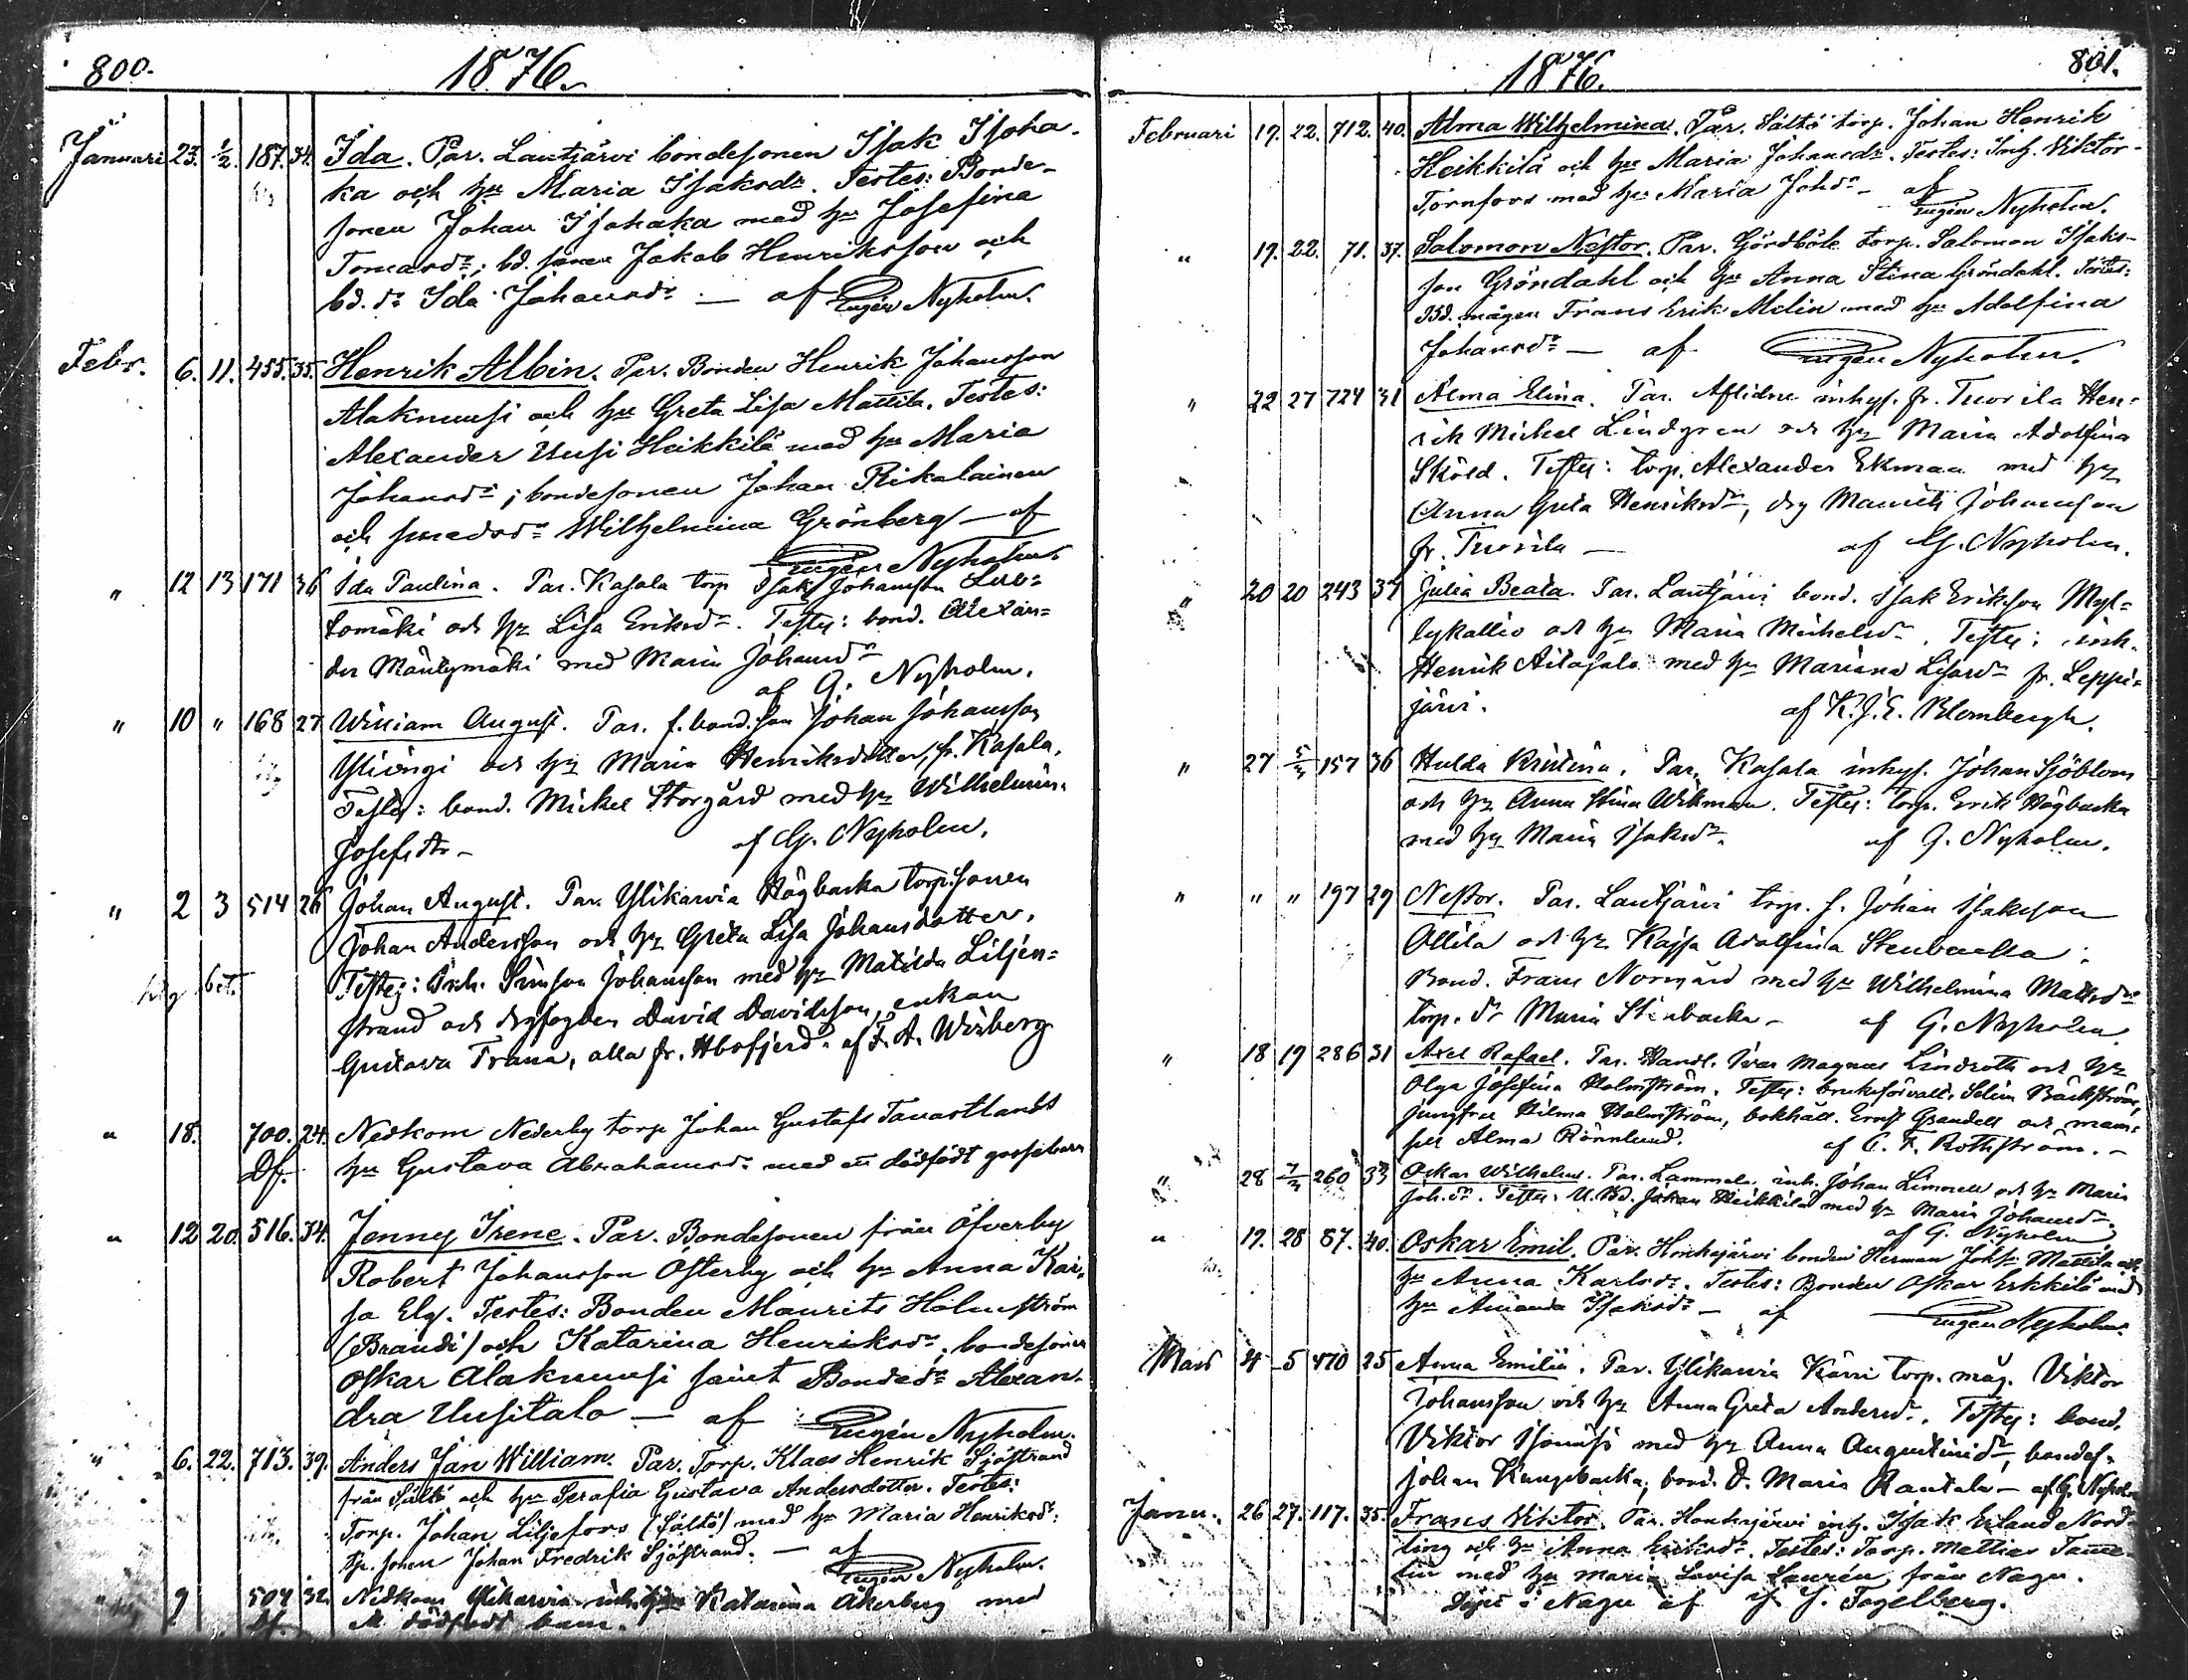 800.
1876.
Januari 23. 1/2. 187. 34. Ida. Par. Lautjärvi bondesonen Isak Isoha-
ka och hu Maria Isaksdr. Testes: Bonde-
sonen Johan Isohaka med hu Josefina
Tomasdr; bd. sonen Jakob Henriksson och
bd. dr Ida Johansdr — af Eugén Nyholm.
Febr. 6. 11. 455. 35. Henrik Albin. Par. Bonden Henrik Johansson
Alaknuusi och hu Greta Lisa Mattila. Testes:
Alexander Uusi Heikkilä med hu Maria
Johansdr; bondesonen Johan Rikalainen
och smedsdr Wilhelmina Grönberg — af
Eugén Nyholm.
" 12 13 171 36 Ida Paulina. Par. Kasala torp Isak Johansson
tomäki och hu Lisa Eriksdr. Testes: bond. Alexan=
der Mäntymäki med Maria Johansdr
af G. Nyholm.
" 10 " 168 27 William August. Par. f. bond. son Johan Johansson
Ylivingi och hu Maria Henriksdotter, fr. Kasala.
Testes: bond. Mickel Storgård med hu Wilhelmin.
Josefsdr — af G. Nyholm.
" 2 3 514 26 Johan August. Par. Ylikarvia Högbacka torp. sonen
Johan Andersson och hu Greta Lisa Johansdotter.
Testes: Inh. Simson Johansson med hu Matilda Liljen=
strand och drgfogden David Davidsson, enkan
Gustava Trana, alla fr. Abofjerd. af F. A. Wiberg
" 18. 700. 24. Nedkom Nederby torp Johan Gustafs Tavastlands
Df. hu Gustava Abrahamsdr med ett dödfödt gossebarn
" 12 20. 516. 34. Jenny Irene. Par. Bondesonen från Öfverby
Robert Johansson Österby och hu Anna Kai-
sa Elg. Testes: Bonden Maurits Holmström
(Brandi) och Katarina Henriksdr, bondesonen
Oskar Alaknuusi samt Bondedr Alexan-
dra Uusitalo — af Eugén Nyholm.
" 6. 22. 713. 39. Anders Jan William. Par. Torp. Klaes Henrik Sjöstrand
från Sältö och hu Serafia Gustava Andersdotter. Testes:
Torp. Johan Liljefors (Sältö) med hu Maria Henriksdr.
tp. sonen Johan Fredrik Sjöstrand. — af
Eugén Nyholm.
" 9 504 32. Nedkom Ylikarvia inh. Katarina Åkerberg med
Df. dödfödt barn.
1876.
801.
Februari 19. 22. 712. 40. Alma Wilhelmina. Par. Sältö torp. Johan Henrik
Heikkilä och hu Maria Johansdr. Testes: Inh. Viktor
Törnfors med hu Maria Johdr — af
Eugén Nyholm.
" 19. 22. 71. 37. Salomon Nestor. Par. Gördböle torp. Salomon Isaks-
son Gröndahl och hu Anna Stina Gröndahl. Testes:
Bd. mågen Frans Erik Melin med hu Adolfina
Johansdr — af Eugén Nyholm.
" 22 27 724 31 Alma Elina. Par. Aflidne inhys. fr. Tuorila Hen-
rik Mickel Lindgren och hu Maria Adolfina
Sköld. Testes: torp. Alexander Ekman med hu
Anna Greta Henriksdr, drg Maurits Johansson
fr. Tuorila — af G. Nyholm.
" 20 20 243 37 Julia Beata. Par. Lautjärvi bond. Isak Eriksson Myl=
lykallio och hu Maria Michelsdr. Testes: inh.
Henrik Aitasalo med hu Mariana Lisasdr fr. Leppi=
järvi. af K. J. E. Blombergh.
" 27 5/3 157 36 Hulda Kristina. Par. Kasala inhys. Johan Sjöblom
och hu Anna Stina Wikman. Testes: torp. Erik Högbacka
med hu Maria Isaksdr. af G. Nyholm.
" " " 197 29 Nestor. Par. Lautjärvi torp. s. Johan Isaksson
Ollila och hu Kajsa Adolfina Stenbacka:
Bond. Frans Norrgård med hu Wilhelmina Mattsdr
torp. dr Maria Stenbacka — af G. Nyholm
" 18 19 286 31 Axel Rafael. Par. Handl. Ivar Magnus Lindroth och hu
Olga Josefina Holmström. Testes: bruksförvalt. Selim Bäckström,
jungfru Hilma Holmström, bokhåll. Ernst Grandell och mam-
sell Alma Rönnlund. af C. F. Rothström. —
" 28 7/3 260 33 Oskar Wilhelm. Par. Lammela inh. Johan Limnell och hu Maria
Joh.dr. Testes: U. Bd. Johan Heikkilä med hu Maria Johansdr.
af G. Nyholm
" 19. 28 87. 40. Oskar Emil. Par. Honkajärvi bonden Herman Johss. Mattila och
hu Anna Karlsdr. Testes: Bonden Oskar Erkkilä med
hu Amanda Isaksdr — af Eugén Nyholm.
Mars 4 5 470 25 Anna Emilia. Par. Ylikarvia Kärri torp. måg. Viktor
Johansson och hu Anna Greta Andersdr. Testes: bond.
Viktor Isoniisi med hu Anna Augustinidr, bondes.
Johan Kungsbacka, bond. D. Maria Rantala — af G. Nyholm
Janu. 26 27. 117. 35. Frans Viktor. Par. Honkajärvi inh. Isak Erland Nord-
ling och hu Anna Eriksdr. Testes: Torp. Mattias Tamme-
lin med hu Maria Lovisa Lauren från Nagu.
Döpt i Nagu af J. Fogelberg.